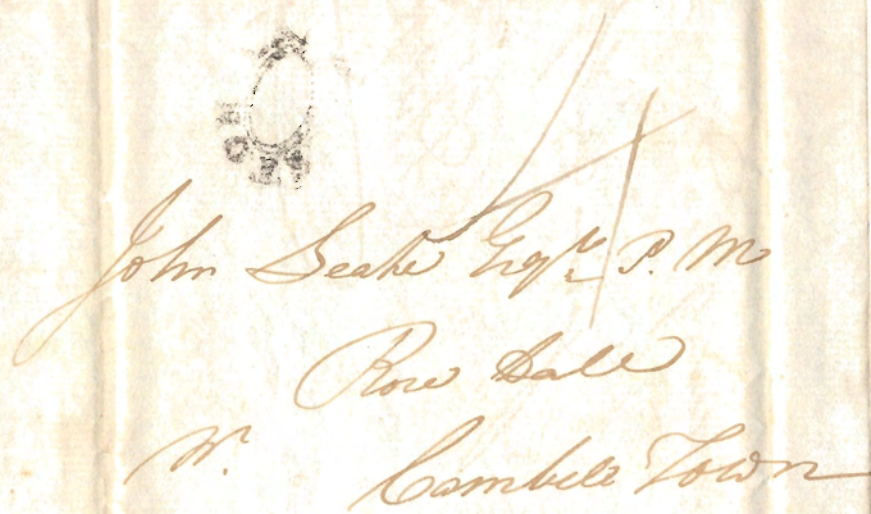 John Leake Esqr P. M
Rose Dale
Nr. Cambele Town